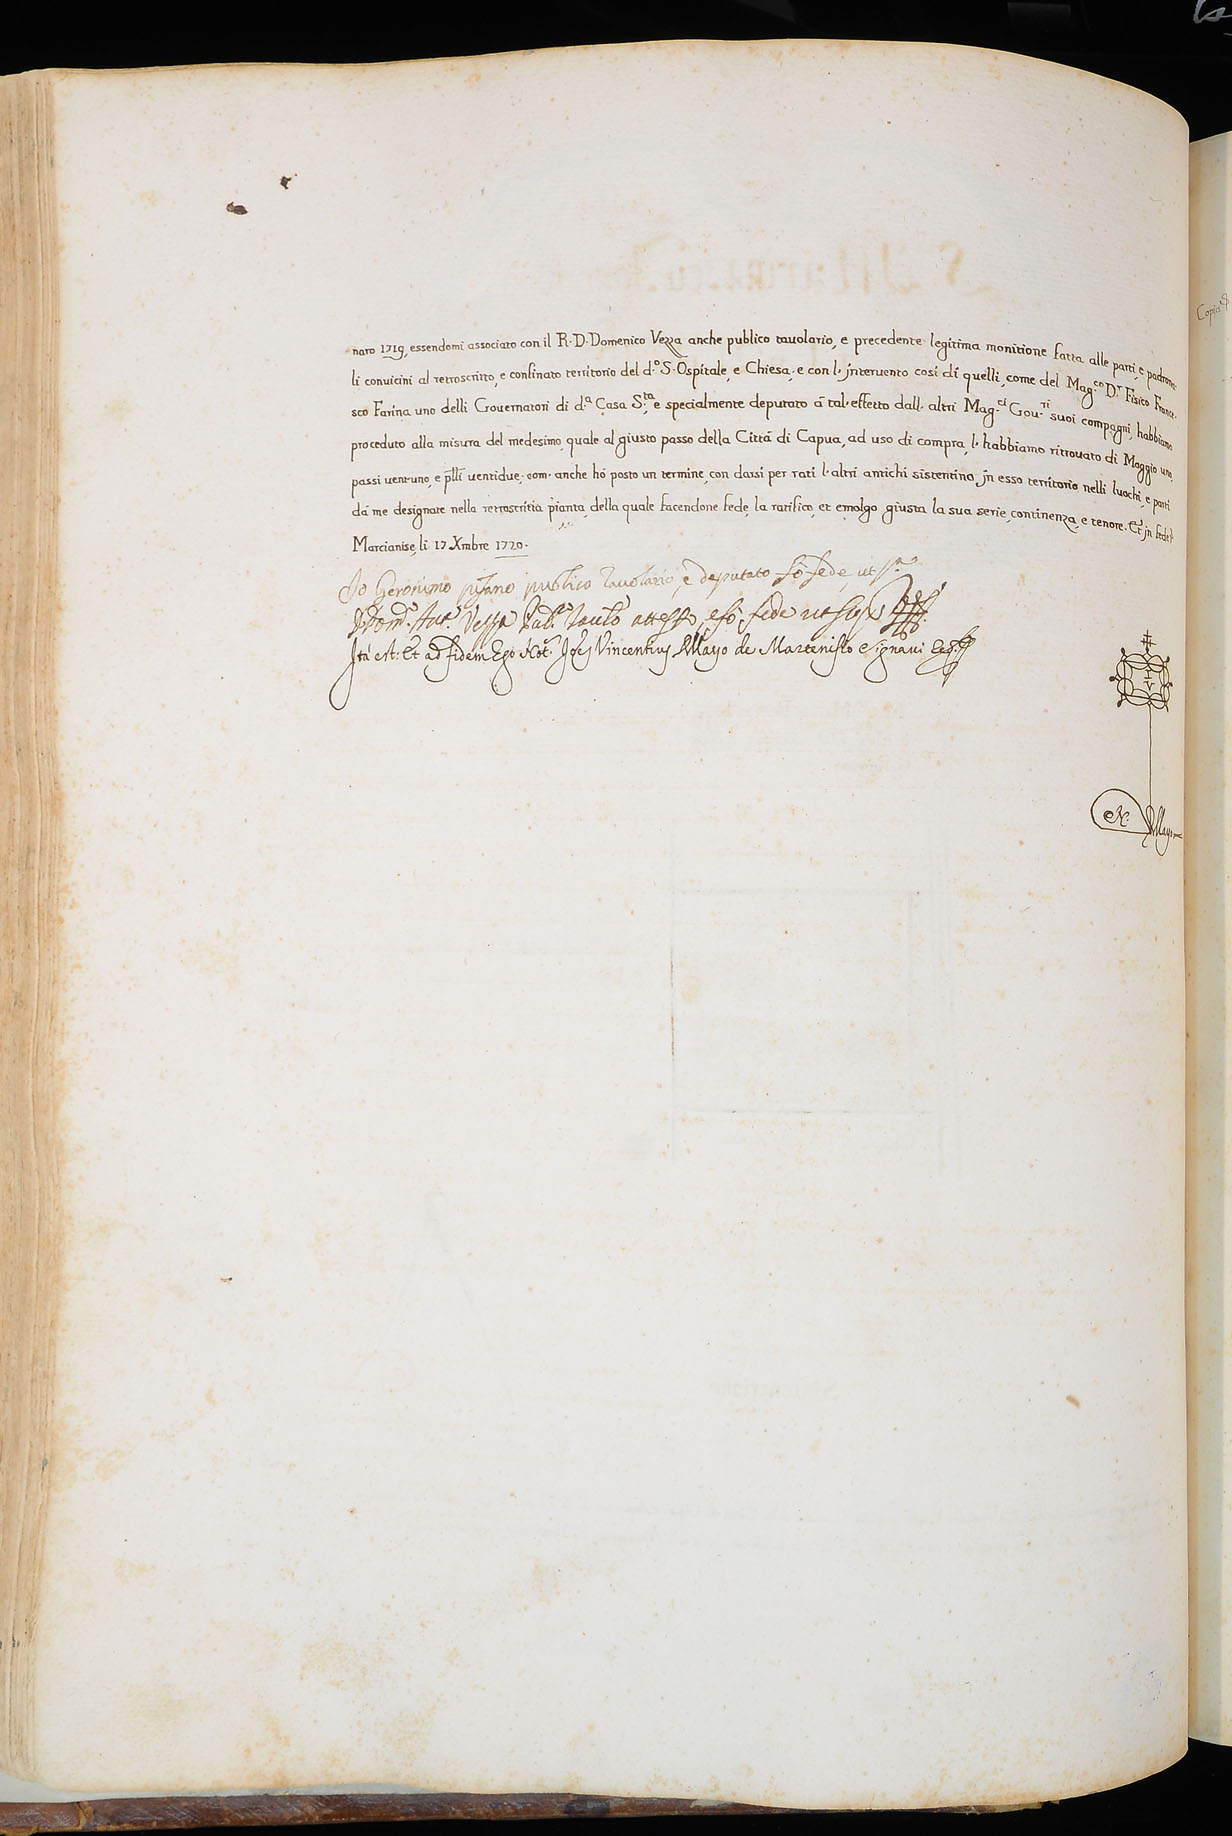 naro 1719, essendomi associato con il R. D. Domenico Vezza anche publico tavolario, e precedente legitima monitione fatta alle parti, e padroni
li convicini al retroscritto, e confinato territorio del d.º S. Ospitale, e Chiesa, e con l' jntervento così di quelli, come del Mag.co D.r Fisico France-
sco Farina uno delli Governatori di d.ª Casa S.ta, e specialmente deputato à tal' effetto dall' altri Mag.ci Gov.ri suoi compagni, habbiamo
proceduto alla misura del medesimo, quale al giusto passo della Città di Capua, ad uso di compra, l' habbiamo ritrovato di Moggio uno,
passi vent'uno, e p̃lli ventidue, com' anche hò posto un termine, con darsi per rati l' altri antichi sistentino, jn esso territorio nelli luochi, e parti
da me designate nella retroscritta pianta, della quale facendone fede, la ratifico, et emolgo giusta la sua serie, continenza, e tenore. Et jn fede
Marcianise, li 17 Xmbre 1720.
Io Geronimo pisano publico tavolario, e deputato fò fede, ut s.ª
D. Dom.co Ant. Vezza Pub.co Tavul.º attesto, e fò fede ut sup.ª
Ita est: Et ad fidem Ego Not. Jos. Vincentius Mayo de Martenisio signavi
I
V
N.
Mayo
Copia